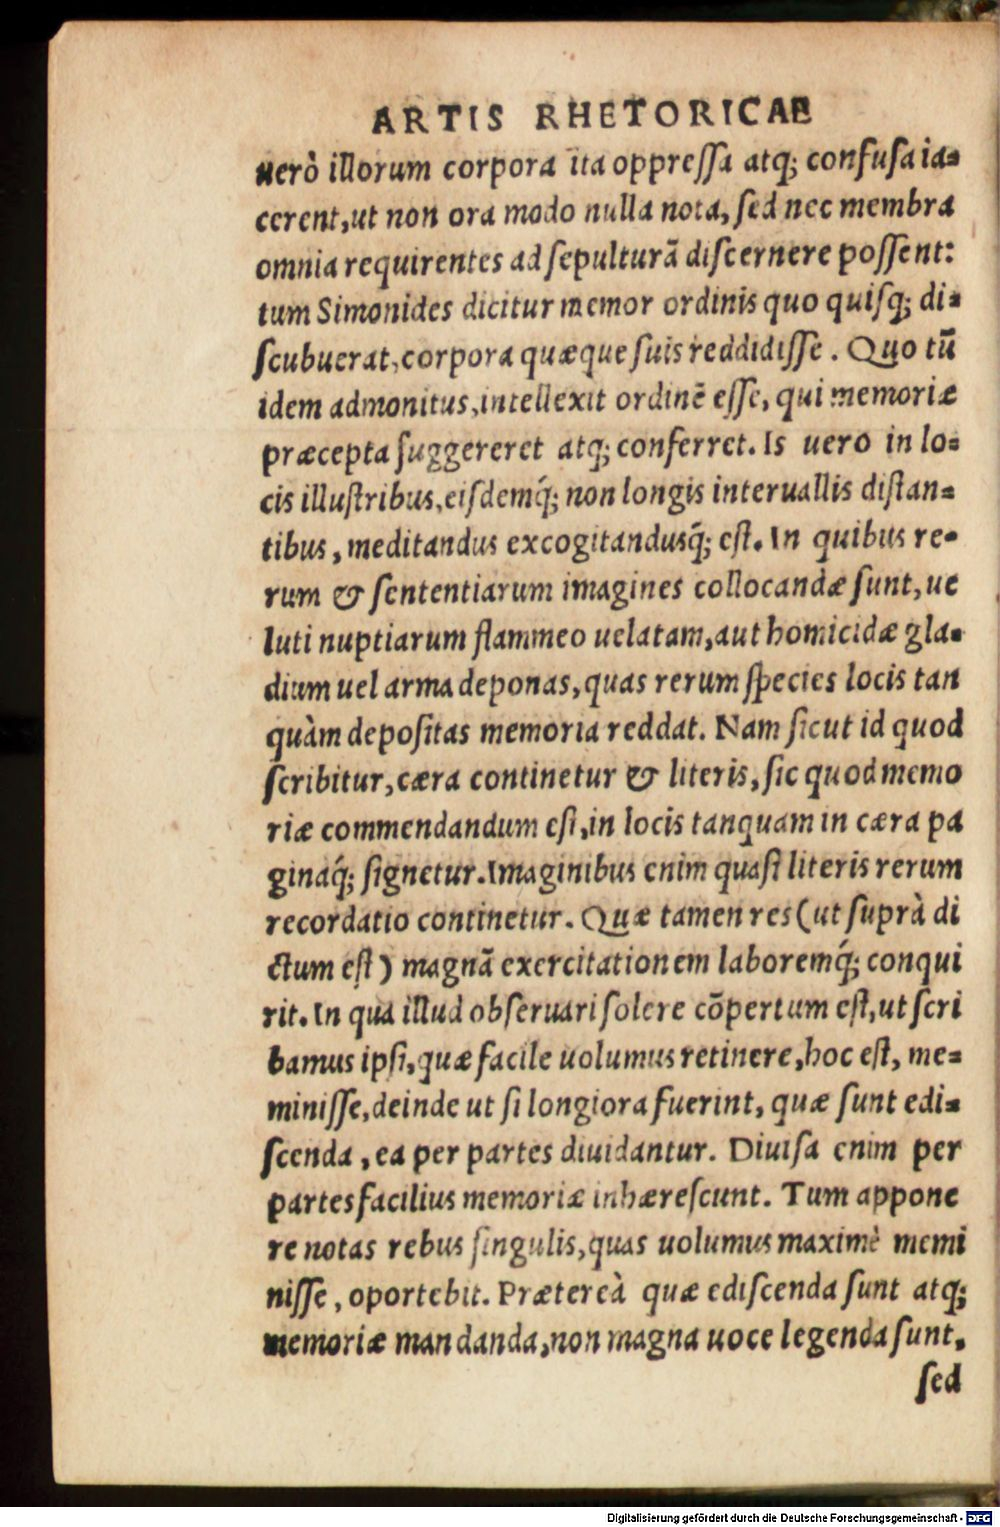 ARTIS RHETORICAE
uerò illorum corpora ita oppressa atq; confusa ia=
cerent, ut non ora modo nulla nota, sed nec membra
omnia requirentes ad sepulturã discernere possent:
tum Simonides dicitur memor ordinis quo quisq; di=
scubuerat, corpora quæque suis reddidisse. Quo tũ
idem admonitus, intellexit ordinẽ esse, qui memoriæ
præcepta suggereret atq; conferret. Is uero in lo=
cis illustribus, eisdemq́; non longis interuallis distan=
tibus, meditandus excogitandusq́; est. In quibus re=
rum & sententiarum imagines collocandæ sunt, ue
luti nuptiarum flammeo uelatam, aut homicidæ gla=
dium uel arma deponas, quas rerum species locis tan
quàm depositas memoria reddat. Nam sicut id quod
scribitur, cæra continetur & literis, sic quod memo
riæ commendandum est, in locis tanquam in cæra pa
ginaq́; signetur. Imaginibus enim quasi literis rerum
recordatio continetur. Quæ tamen res (ut suprà di
ctum est) magnã exercitationem laboremq́; conqui
rit. In qua illud obseruari solere cõpertum est, ut scri
bamus ipsi, quæ facile uolumus retinere, hoc est, me=
minisse, deinde ut si longiora fuerint, quæ sunt edi=
scenda, ea per partes diuidantur. Diuisa enim per
partes facilius memoriæ inhærescunt. Tum appone
re notas rebus singulis, quas uolumus maximè memi
nisse, oportebit. Prætereà quæ ediscenda sunt atq;
memoriæ mandanda, non magna uoce legenda sunt,
sed
Digitalisierung gefördert durch die Deutsche Forschungsgemeinschaft - DFG